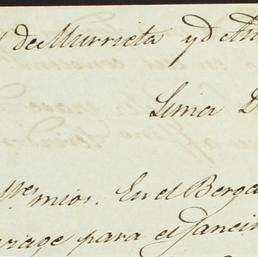 de Murrieta y d
Lima D
mios. En el Berga
viage para el Janei